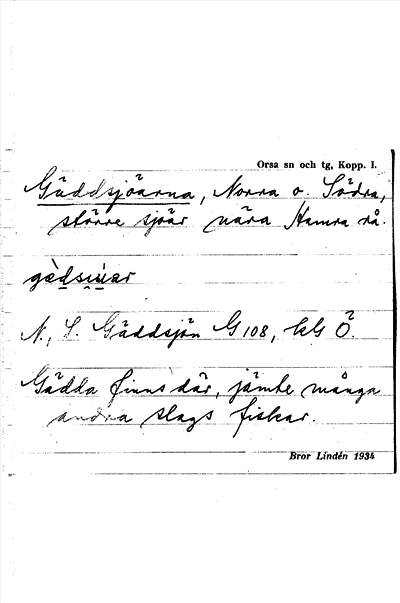 Orsa sn och tg, Kopp. l.
Gäddsjöarna, Norra o. Södra,
större sjöar nära Hamra rå.
N., S. Gäddsjön G 108, kls Ö.
Gädda finns där, jämte många
andra slags fiskar.
Bror Lindén 1934